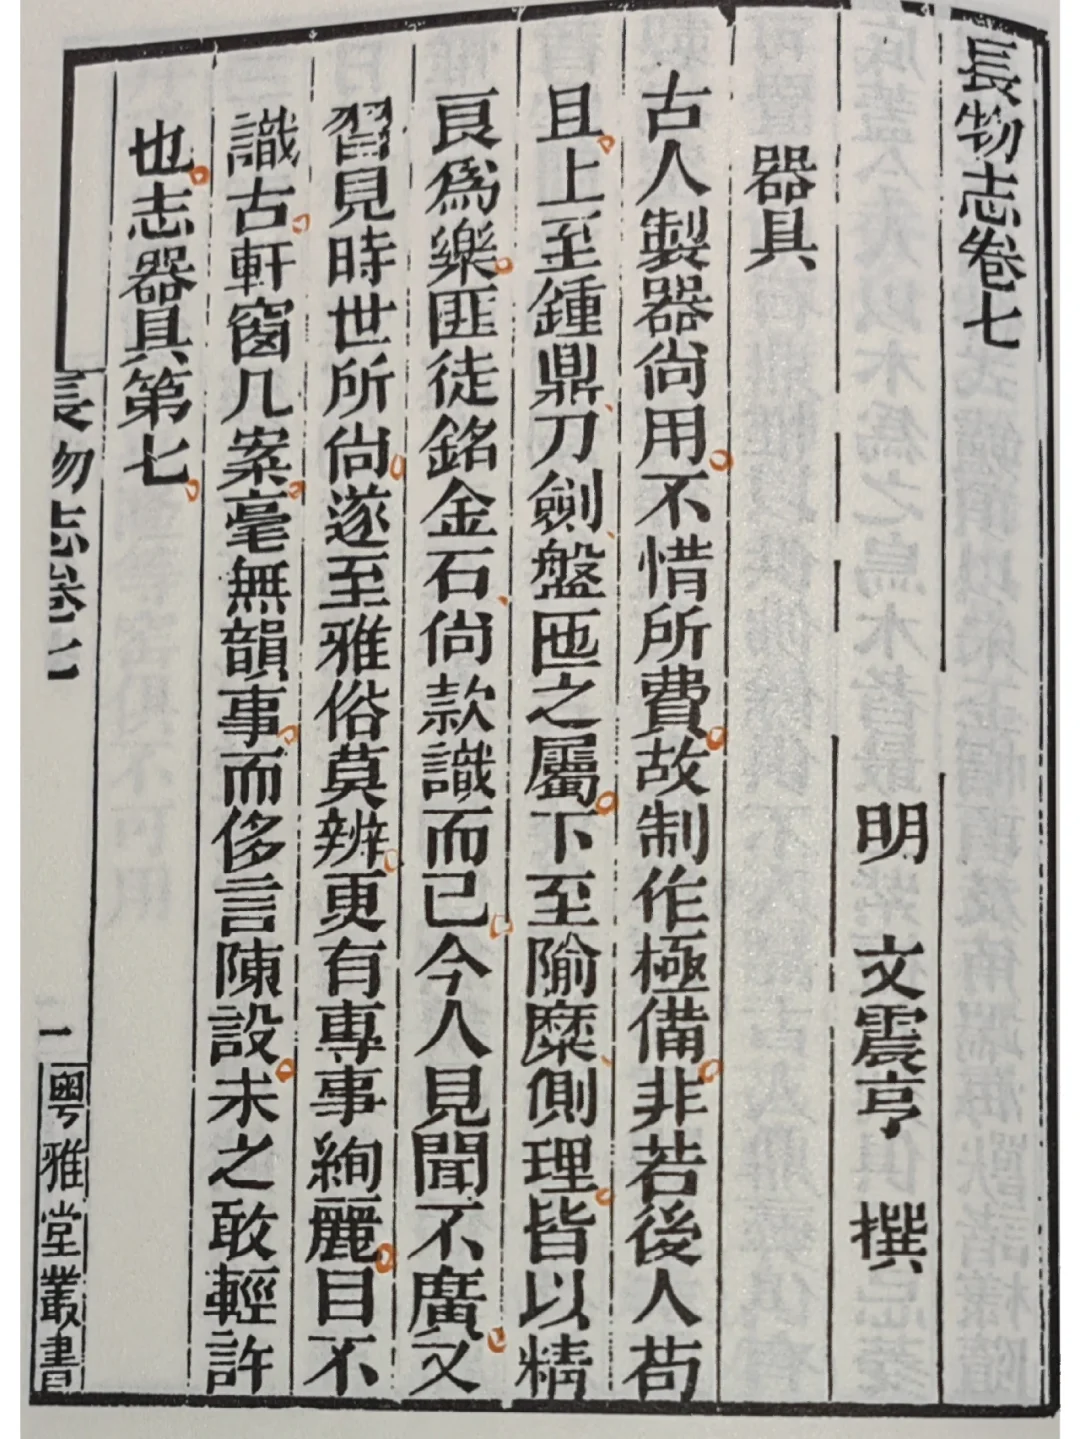 長物志卷七
明 文震亨 撰
器具
古人製器尙用不惜所費故制作極備非若後人苟
且上至鍾鼎刀劍盤匜之屬下至隃糜側理皆以精
良爲樂匪徒銘金石尙款識而已今人見聞不廣又
習見時世所尙遂至雅俗莫辨更有專事絢麗目不
識古軒窗几案毫無韻事而侈言陳設未之敢輕許
也志器具第七
長物志卷七
一
粵雅堂叢書